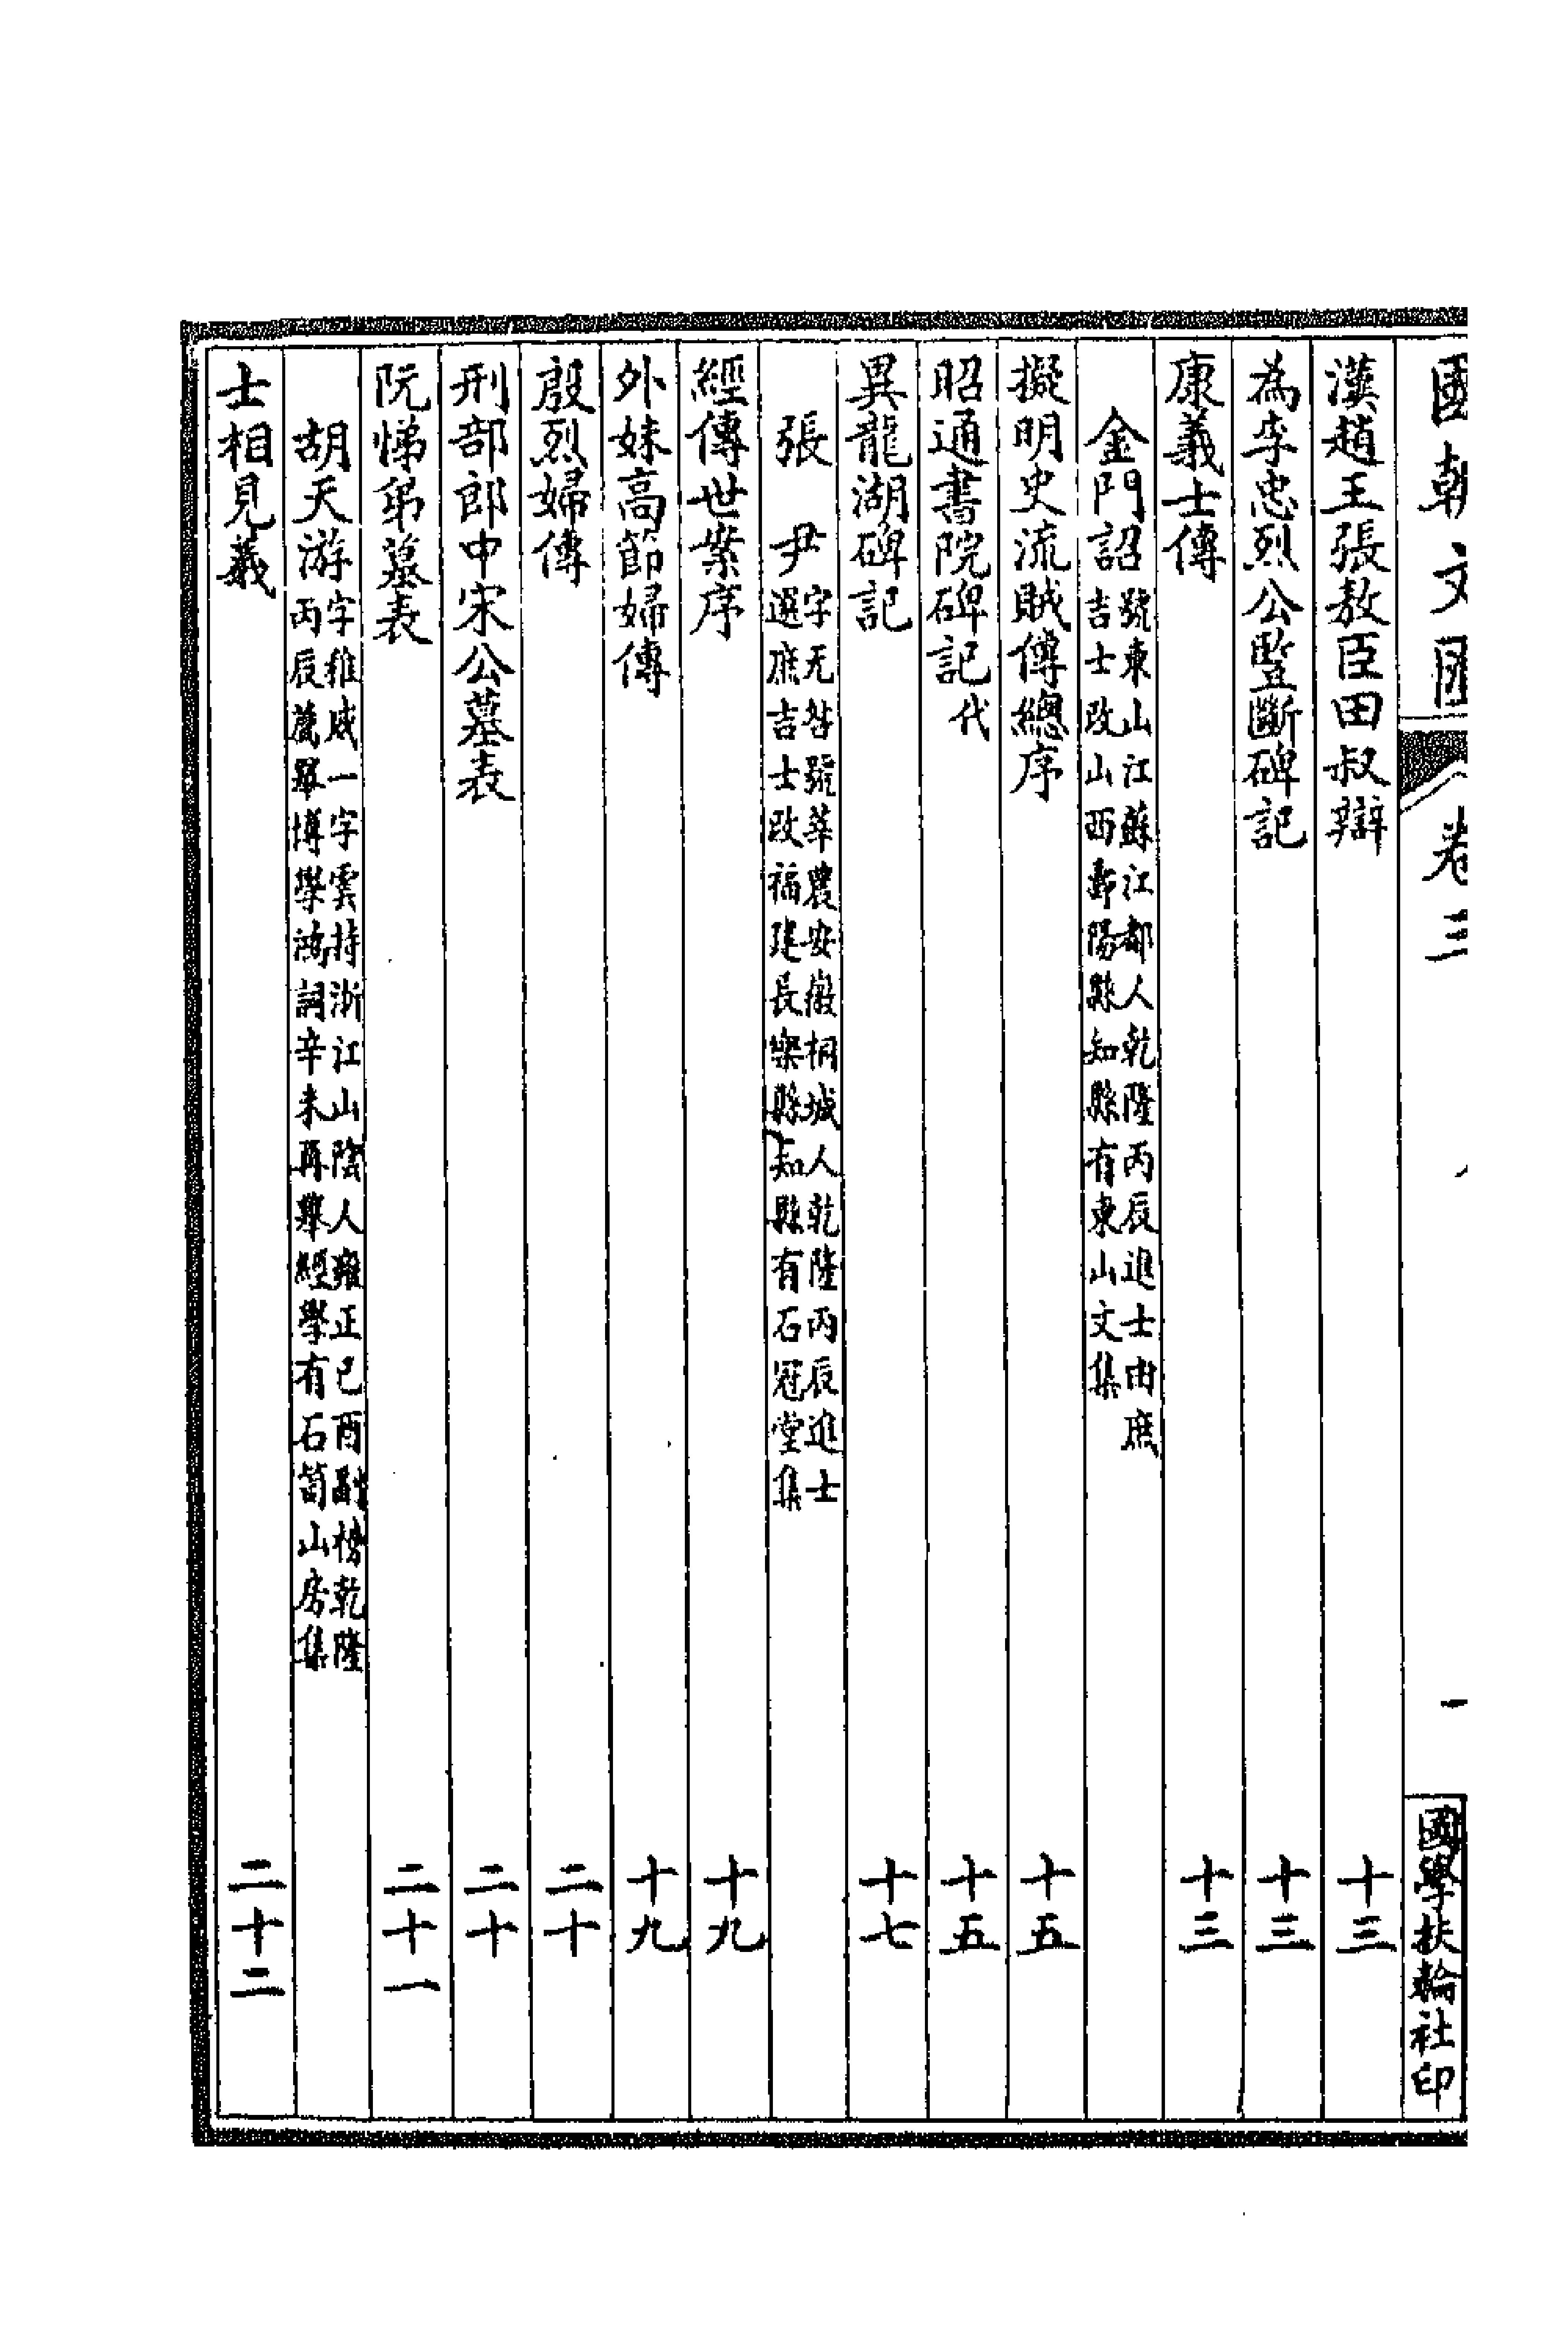 國朝文匯 卷三 一 國學扶輪社印
漢趙王張敖臣田叔辯 十三
為李忠烈公豎斷碑記 十三
康義士傳 十三
金門詔 號東山江蘇江都人乾隆丙辰進士由庶
吉士改山西壽陽縣知縣有東山文集
擬明史流賊傳總序 十五
昭通書院碑記代 十五
異龍湖碑記 十七
張尹 字无咎號莘農安徽桐城人乾隆丙辰進士
選庶吉士改福建長樂縣知縣有石冠堂集
經傳世案序 十九
外妹高節婦傳 十九
殷烈婦傳 二十
刑部郎中宋公墓表 二十
阮悌弟墓表 二十一
胡天游 字稚威一字雲持浙江山陰人雍正己酉副榜乾隆
丙辰薦舉博學鴻詞辛未再舉經學有石笥山房集
士相見義 二十二